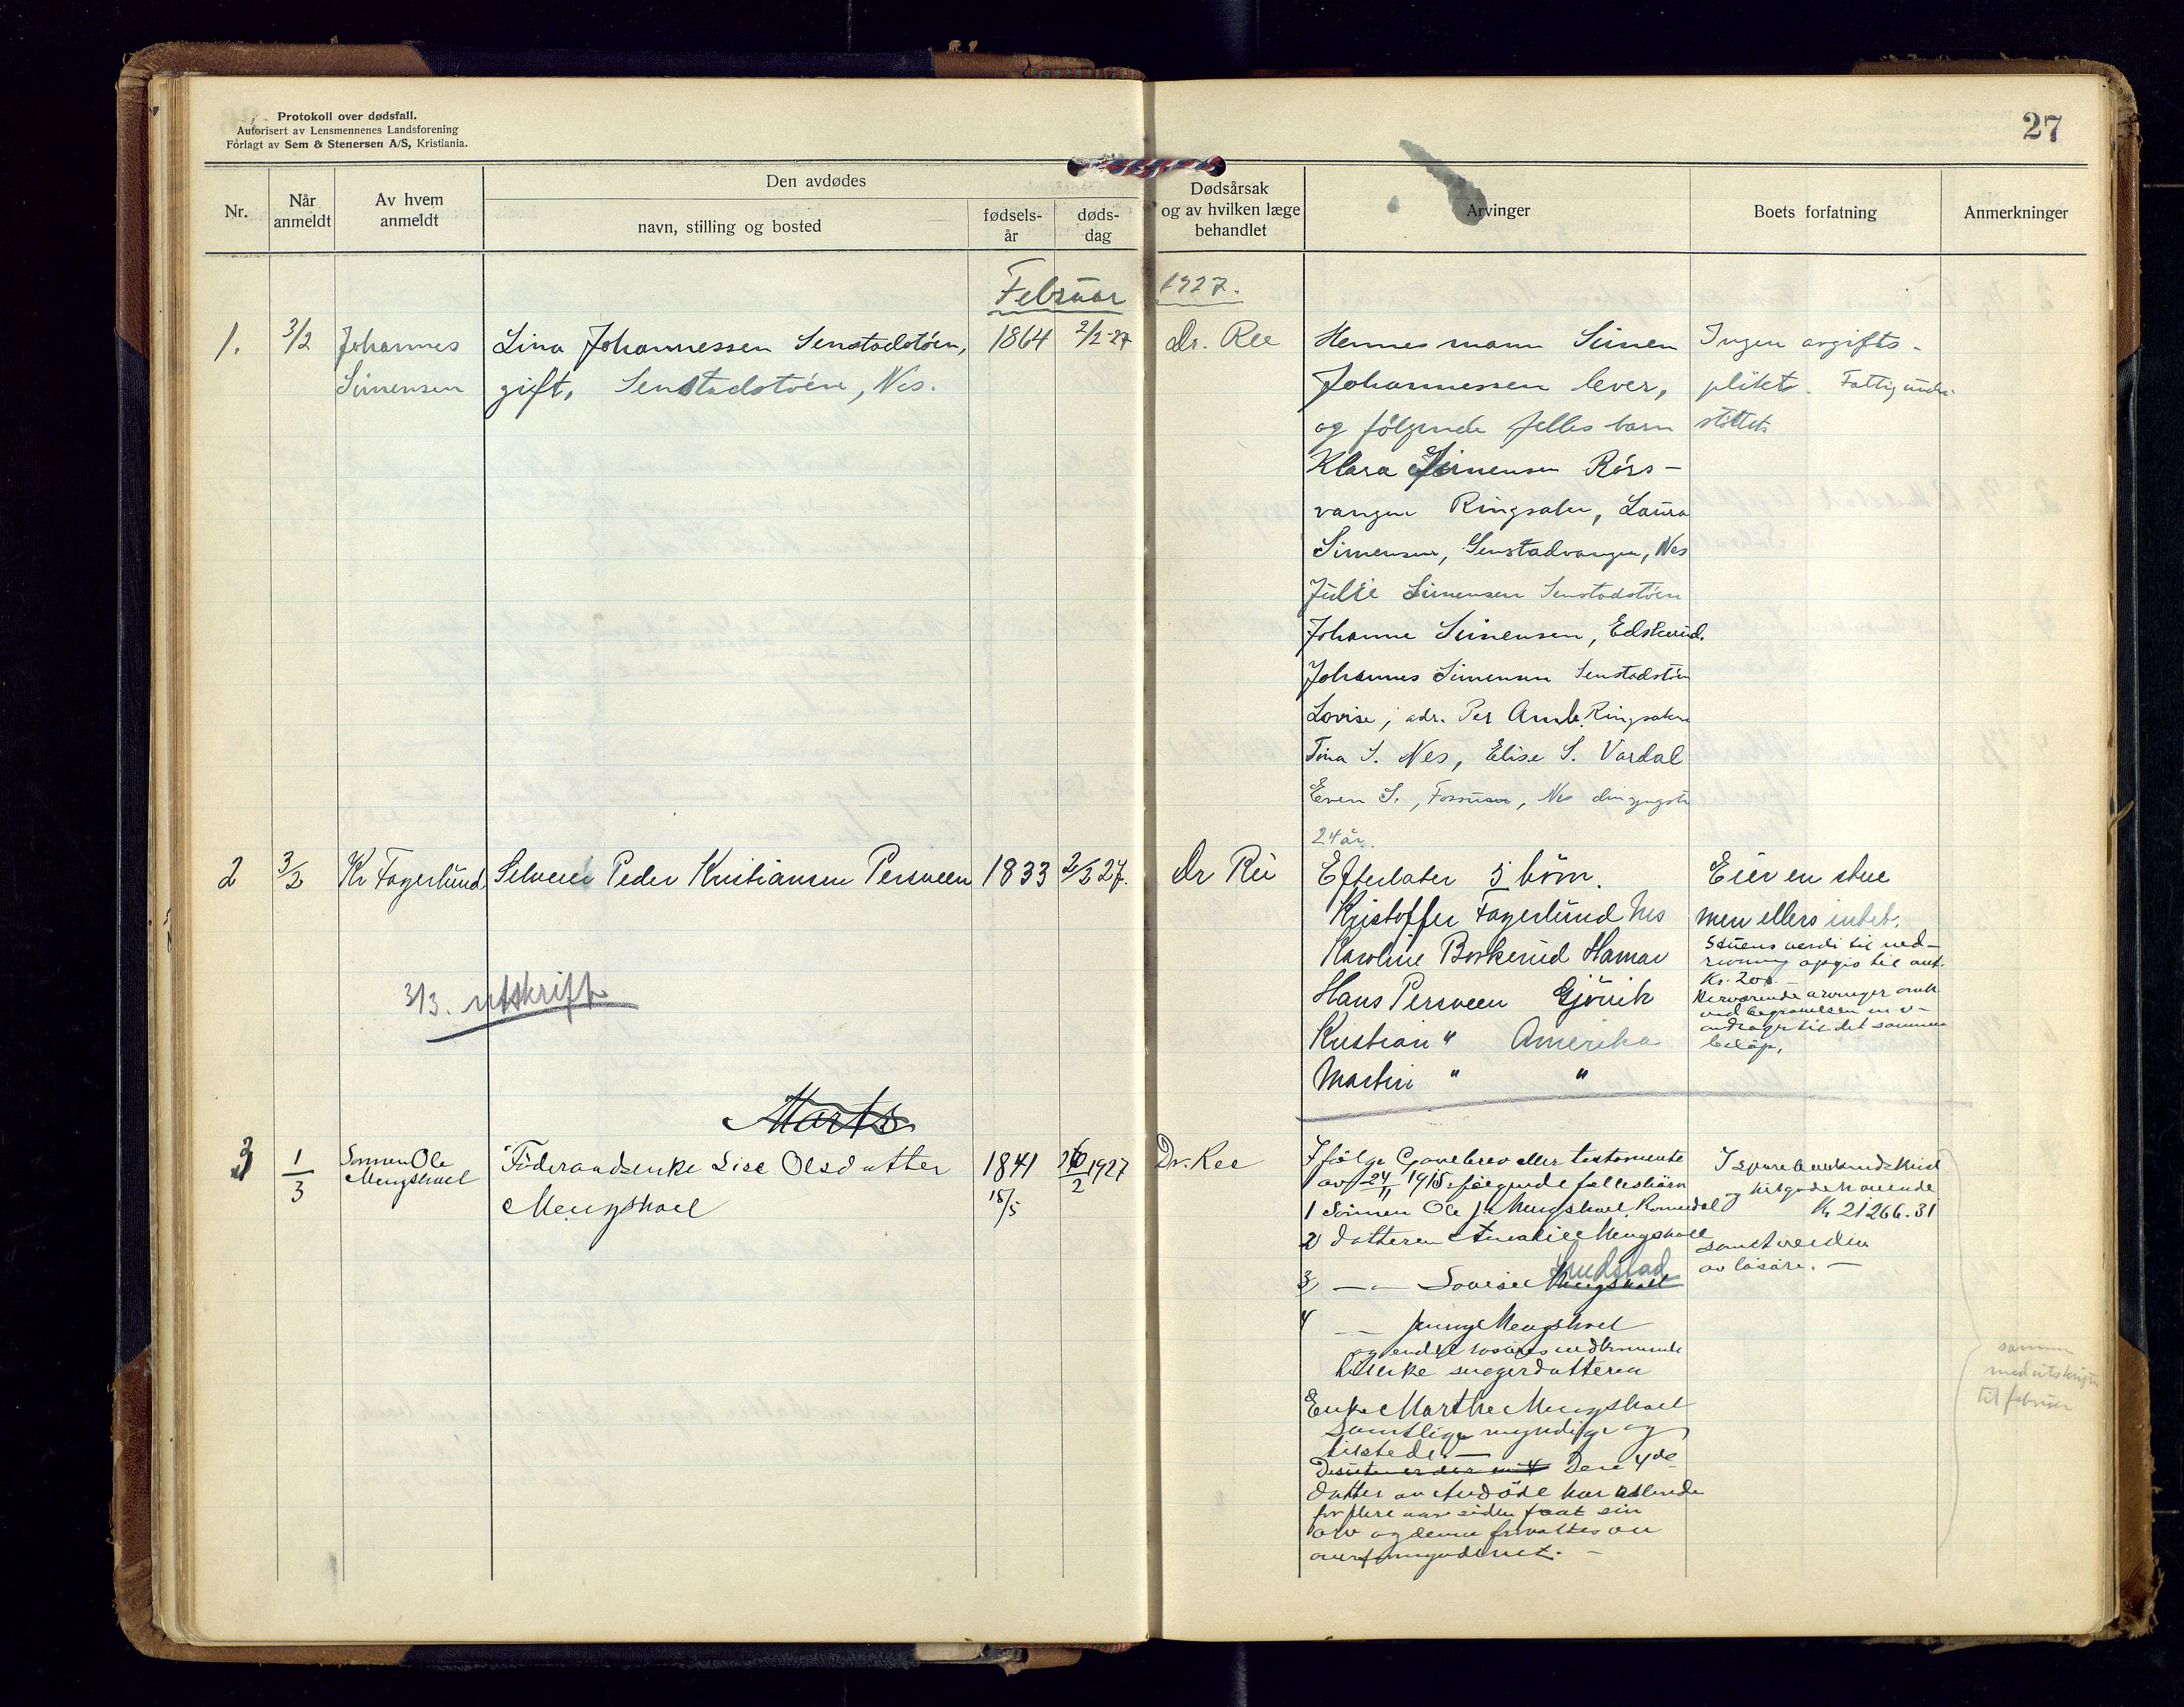 Protokoll over dødsfall.
Autorisert av Lensmennenes Landsforening
Forlagt av Sem & Stenersen A/S, Kristiania.
27
Nr.
Når anmeldt
Av hvem anmeldt
Den avdødes
navn, stilling og bosted
fødsels-år
døds-dag
Dødsårsak og av hvilken læge behandlet
Arvinger
Boets forfatning
Anmerkninger
Februar 1927.
1. 3/2 Johannes Simensen
Lina Johannessen Senstadstöen,
gift, Senstadstöen, Nes.
1864 2/2-27 Dr. Ree
Hennes mann Simen
Johannessen lever,
og følgende felles barn
Klara Simensen Rörs-
vangen Ringsaker, Laura
Simensen, Senstadvangen, Nes
Julie Simensen Senstadstöen
Johanne Simensen, Edskerud.
Johannes Simensen Senstadstöen
Lovise, adr. Per Amb. Ringsaker
Tina S. Nes, Elise S. Vardal
Even S., Nes den yngste
24 år.
Ingen avgifts-
plikt. Fattigunder-
støttet.
2 3/2 Kr Fagerlund
Selveier Peder Kristiansen Persveen 1833 2/2 27. Dr Ree
Efterlater 5 börn.
Kristoffer Fagerlund Nes
Karoline Borkerud Hamar
Hans Persveen Gjövik
Kristian " Amerika
Martin " "
Eier en stue
men ellers intet.
Stuens verdi til ned-
rivning opgis til ant.
Kr. 200.-
andrager til det samme
belöp.
3/3. utskrift
Marts
3 1/3 Sönnen Ole Mengshoel
Föderaadsenke Lise Olsdatter
Mengshoel
1841 18/5
26/2 1927
Dr. Ree
Ifölge Gavebrev eller testamente
av 24/11 1915 følgende fellesbörn
1 Sönnen Ole J. Mengshoel, Romedal
2 datteren Amalie Mengshoel
3 — " — Lovise Mengshoel Hudstad
4 — — Jenny Mengshoel
svigerdatteren
Enke Marthe Mengshoel
Samtlige myndige og
tilstede. —
Den 4de
datter av Avdöde har
for flere aar siden faat sin
arv og denne forvaltes av
overformynderiet. —
I sparebank
og tilgodehavende
Kr 21266.31
samt verdien
av lösöre. —
sammen
med utskrift
til februar